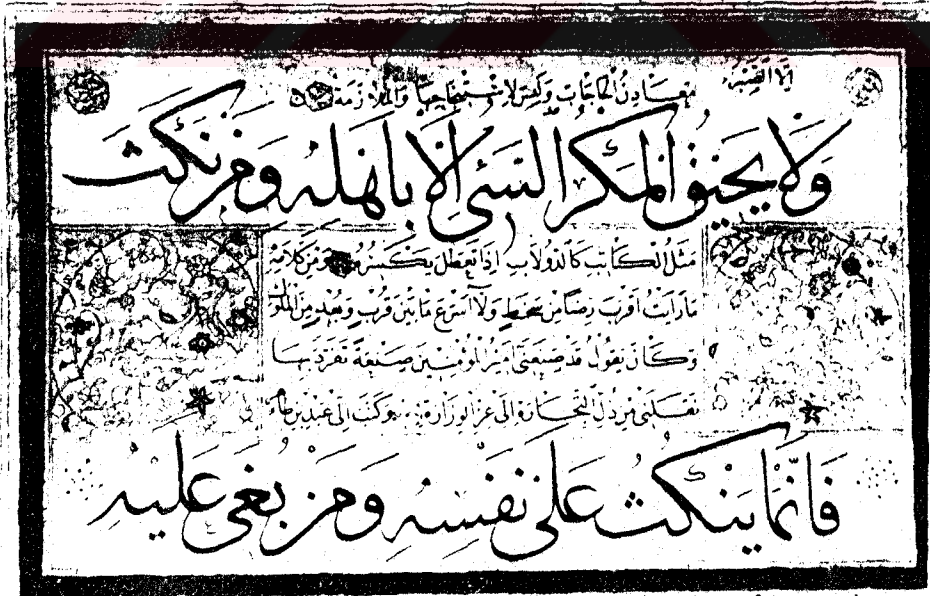 إلا الصبر
معادن الحاجات وليس لاستنجاحها والملازمة
ولا يحيق المكر السيئ إلا بأهله ومن نكث
مثل الكاتب كالدولاب إذا تعطل يكسر ومن كلامه
ما رأيت أقرب رضا من سخط ولا أسرع ما بين قرب وبعد من الملو
وكان يقول قد صنعني أمير المؤمنين صنيعة تفرد بها
نقلني من ذل التجارة إلى عز الوزارة وكتب إلى عبد الله بن طاهر
فإنما ينكث على نفسه ومن بغي عليه